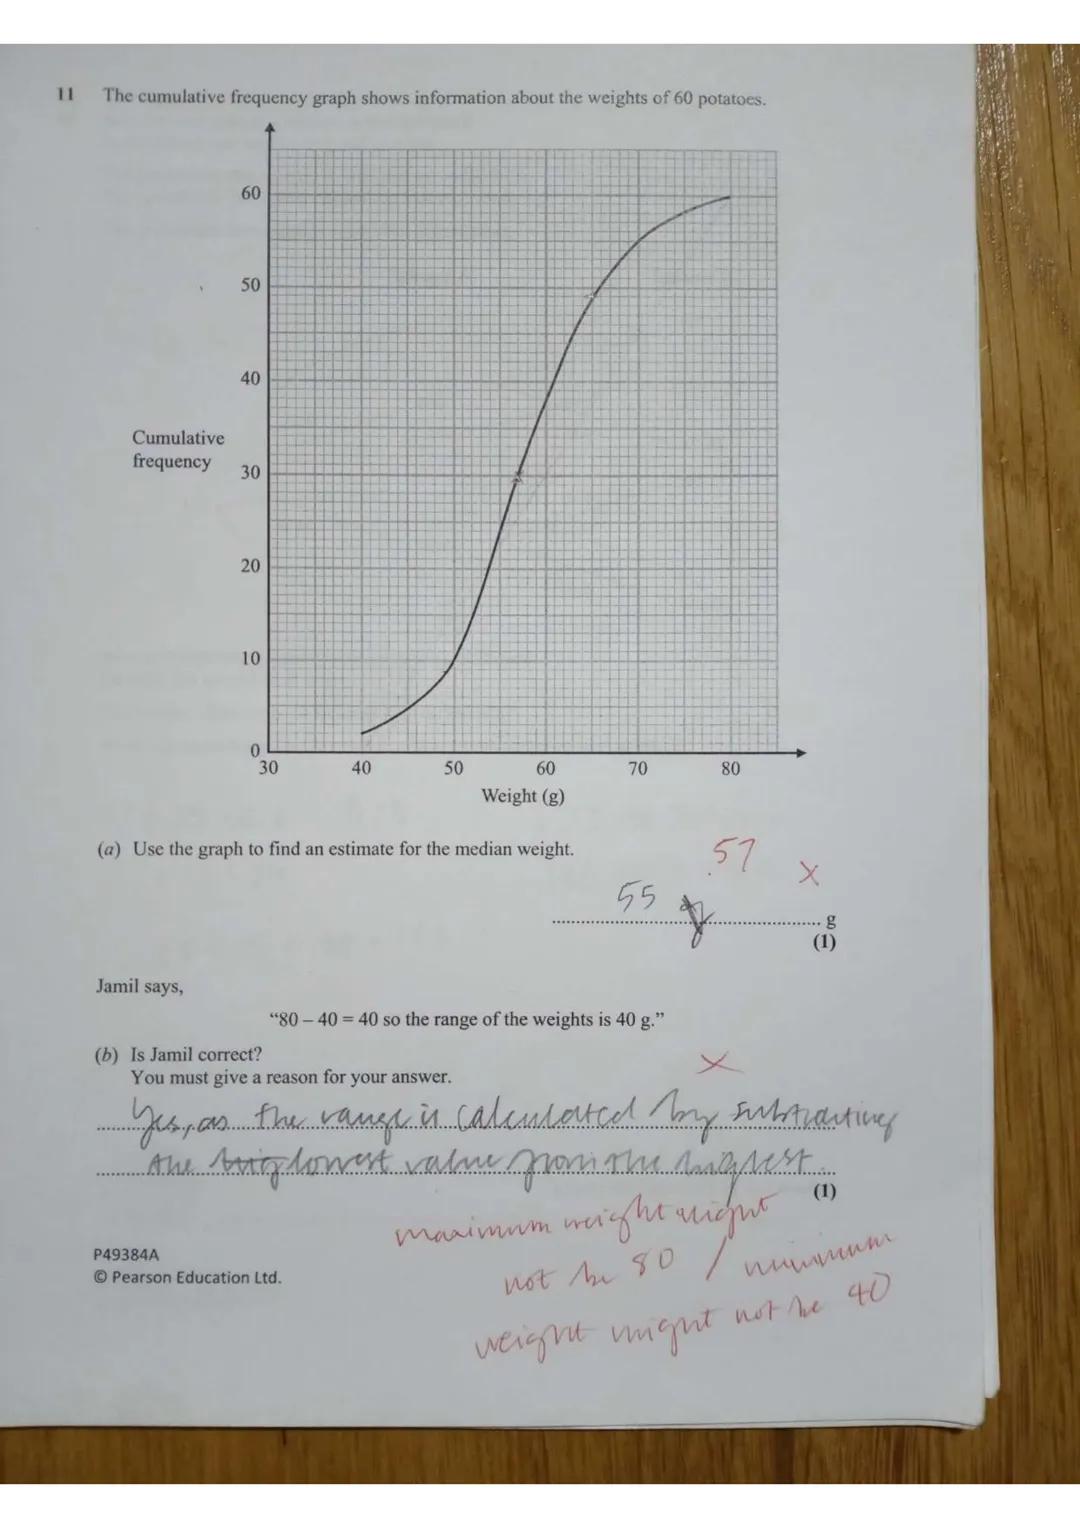 11 The cumulative frequency graph shows information about the weights of 60 potatoes.
60
50
40
Cumulative
frequency
30
20
10
0
30 40 50 60 70 80
Weight (g)
(a) Use the graph to find an estimate for the median weight.
57 x
55 g
g
(1)
Jamil says,
“80 – 40 = 40 so the range of the weights is 40 g.”
(b) Is Jamil correct?
x
You must give a reason for your answer.
Yes, as the range is calculated by subtracting
the lowest value from the highest
(1)
maximum weight might
not be 80 / minimum
weight might not be 40
P49384A
© Pearson Education Ltd.